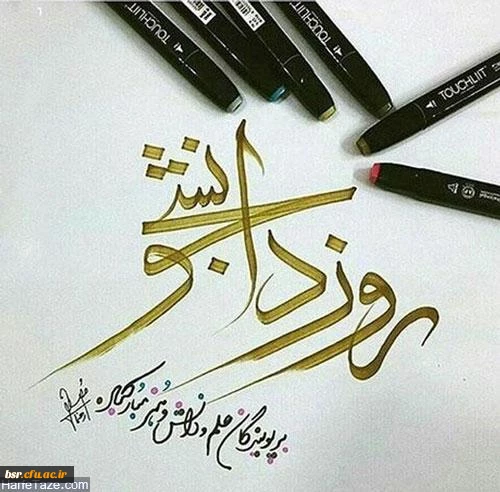 TOUCHLIIT
TOUCHLIIT
روز دانشجو
بر پویندگان علم و دانش و هنر مُبارکباد
bsr.cfu.ac.ir
HarfeTaze.com